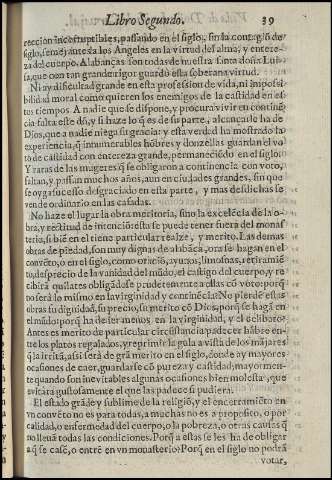 Libro Segundo. 39
rección incorruptibles, passando en el siglo, sin la contagió de
siglo, semejantes a los Angeles en la virtud del alma, y entere-
za del cuerpo. Alabanças son todas de nuestra santa doña Lui-
sa, que con tan grande rigor guardò esta soberana virtud.
Ni ay dificultad grande en esta profession de vida, ni imposi-
bilidad moral como quieren los enemigos de la castidad en es-
tos tiempos. A nadie que se dispone, y procura vivir en continẽ-
cia falta este dõ, y si haze lo q̃ es de su parte, alcançarle ha de
Dios, que a nadie niega su gracia: y esta verdad ha mostrado la
experiencia, q̃ innumerables hõbres y donzellas guardan el vo
to de castidad con entereza grande, permaneciẽdo en el siglo:
Y raras de las mugeres q̃ se obligaron a continencia con voto,
faltan, y passan muchos años, aun en ciudades grandes, sin que
se oyga sucesso desgraciado en esta parte, y mas desdichas se
vende ordinario en las casadas.
No haze el lugar la obra meritoria, sino la excelẽcia de la o-
bra, y rectitud de intenciõ: esta se puede tener fuera del monas
terio, si biẽ en el tiene particular realze, y merito. Las demas
obras de piedad, son muy dignas de alabãça, ora se hagan en el
convẽto, o en el siglo, como oraciõ, ayunos, limosnas, retiramiẽ
to, desprecio de la vanidad del mũdo, el castigo del cuerpo, y re
cibirã quilates obligãdose prudentemente a ellas cõ voto: porq̃
no serà lo mismo en la virginidad y continẽcia? No pierdẽ estas
obras su dignidad, su precio, su merito cõ Dios, porq̃ se hagã en
el mũdo: porq̃ ha de ser menos, en la virginidad, y el celibato?
Antes es merito de particular circũstancia padecer hãbre en-
tre los platos regalados, y reprimir la gula a vista de los mãjares
q̃ la irritã, assi serà de grã merito en el siglo, donde ay mayores
ocasiones de caer, guardarse cõ pureza y castidad, mayormen-
te quando son inevitables algunas ocasiones bien molestas, que
evitàra gustosamente el que las padece si pudiera.
El estado grade y sublime de la religiõ, y el encerramiẽto en
vn convẽto no es para todas, a muchas no es a proposito, o por
calidad, o enfermedad del cuerpo, o la pobreza, o otras causas q̃
no lleuã todas las condiciones. Porq̃ a estas se les ha de obligar
a q̃ se casẽ, o entrẽ en vn monasterio? Porq̃ en el siglo no podrã
votar,